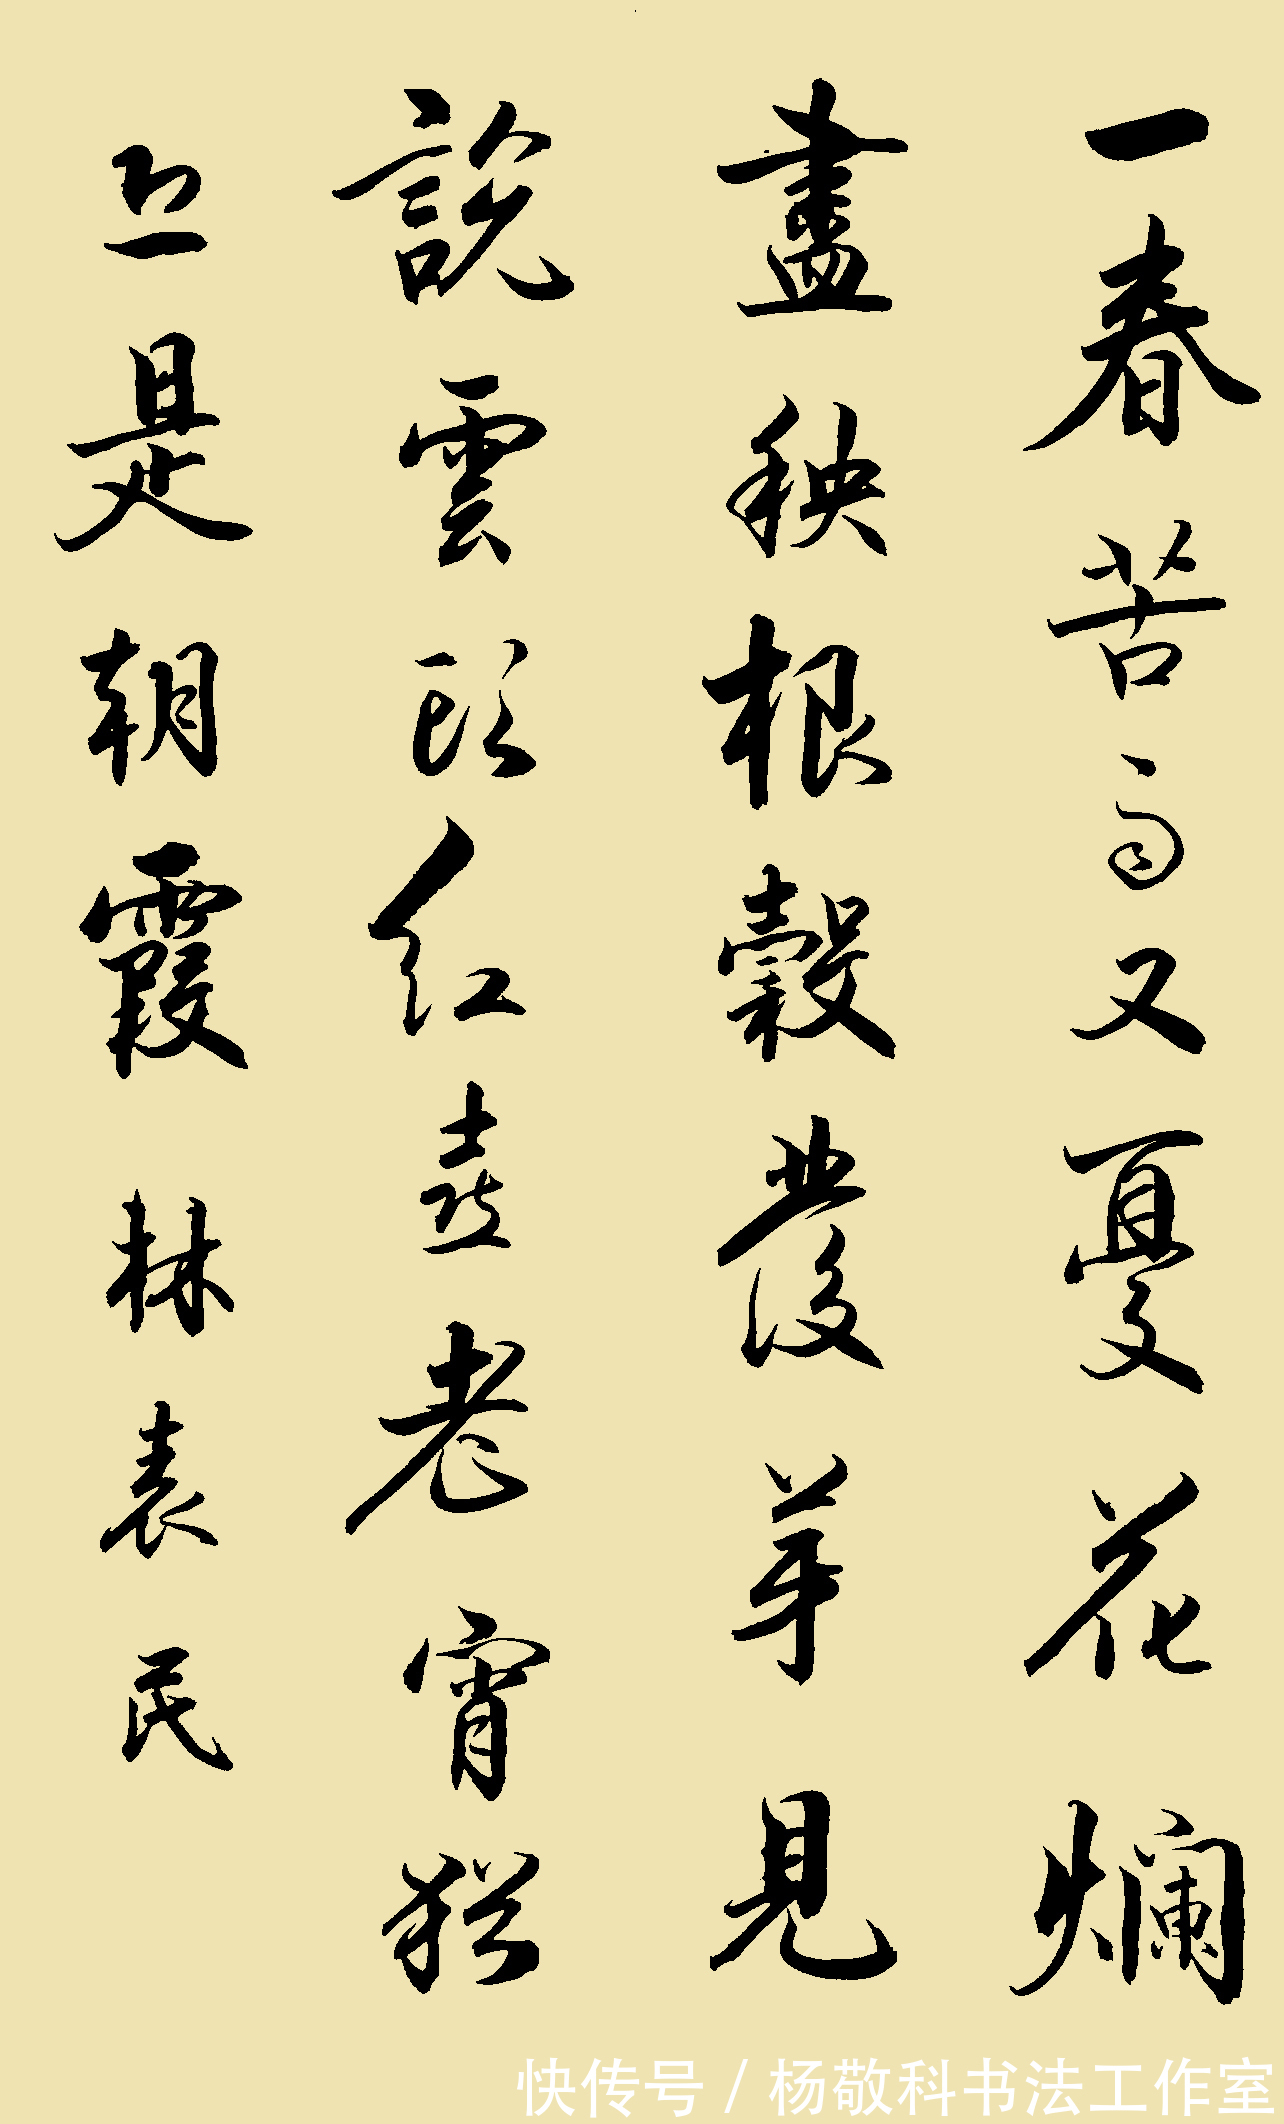 一春苦雨又憂花爛
盡秧根穀發芽見
說雲頭紅喜老宵猶
恐是朝霞 林表民
快传号 / 杨敬科书法工作室